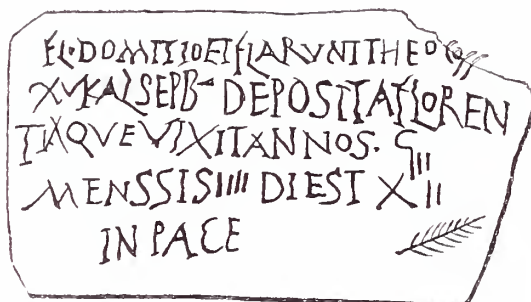 FL·DOMITIOETFLARVNITHEO COSS
XVKALSEPB DEPOSITAFLOREN
TIAQVEVIXITANNOS· ϚIII
MENSSISIIII DIEST XII
IN PACE